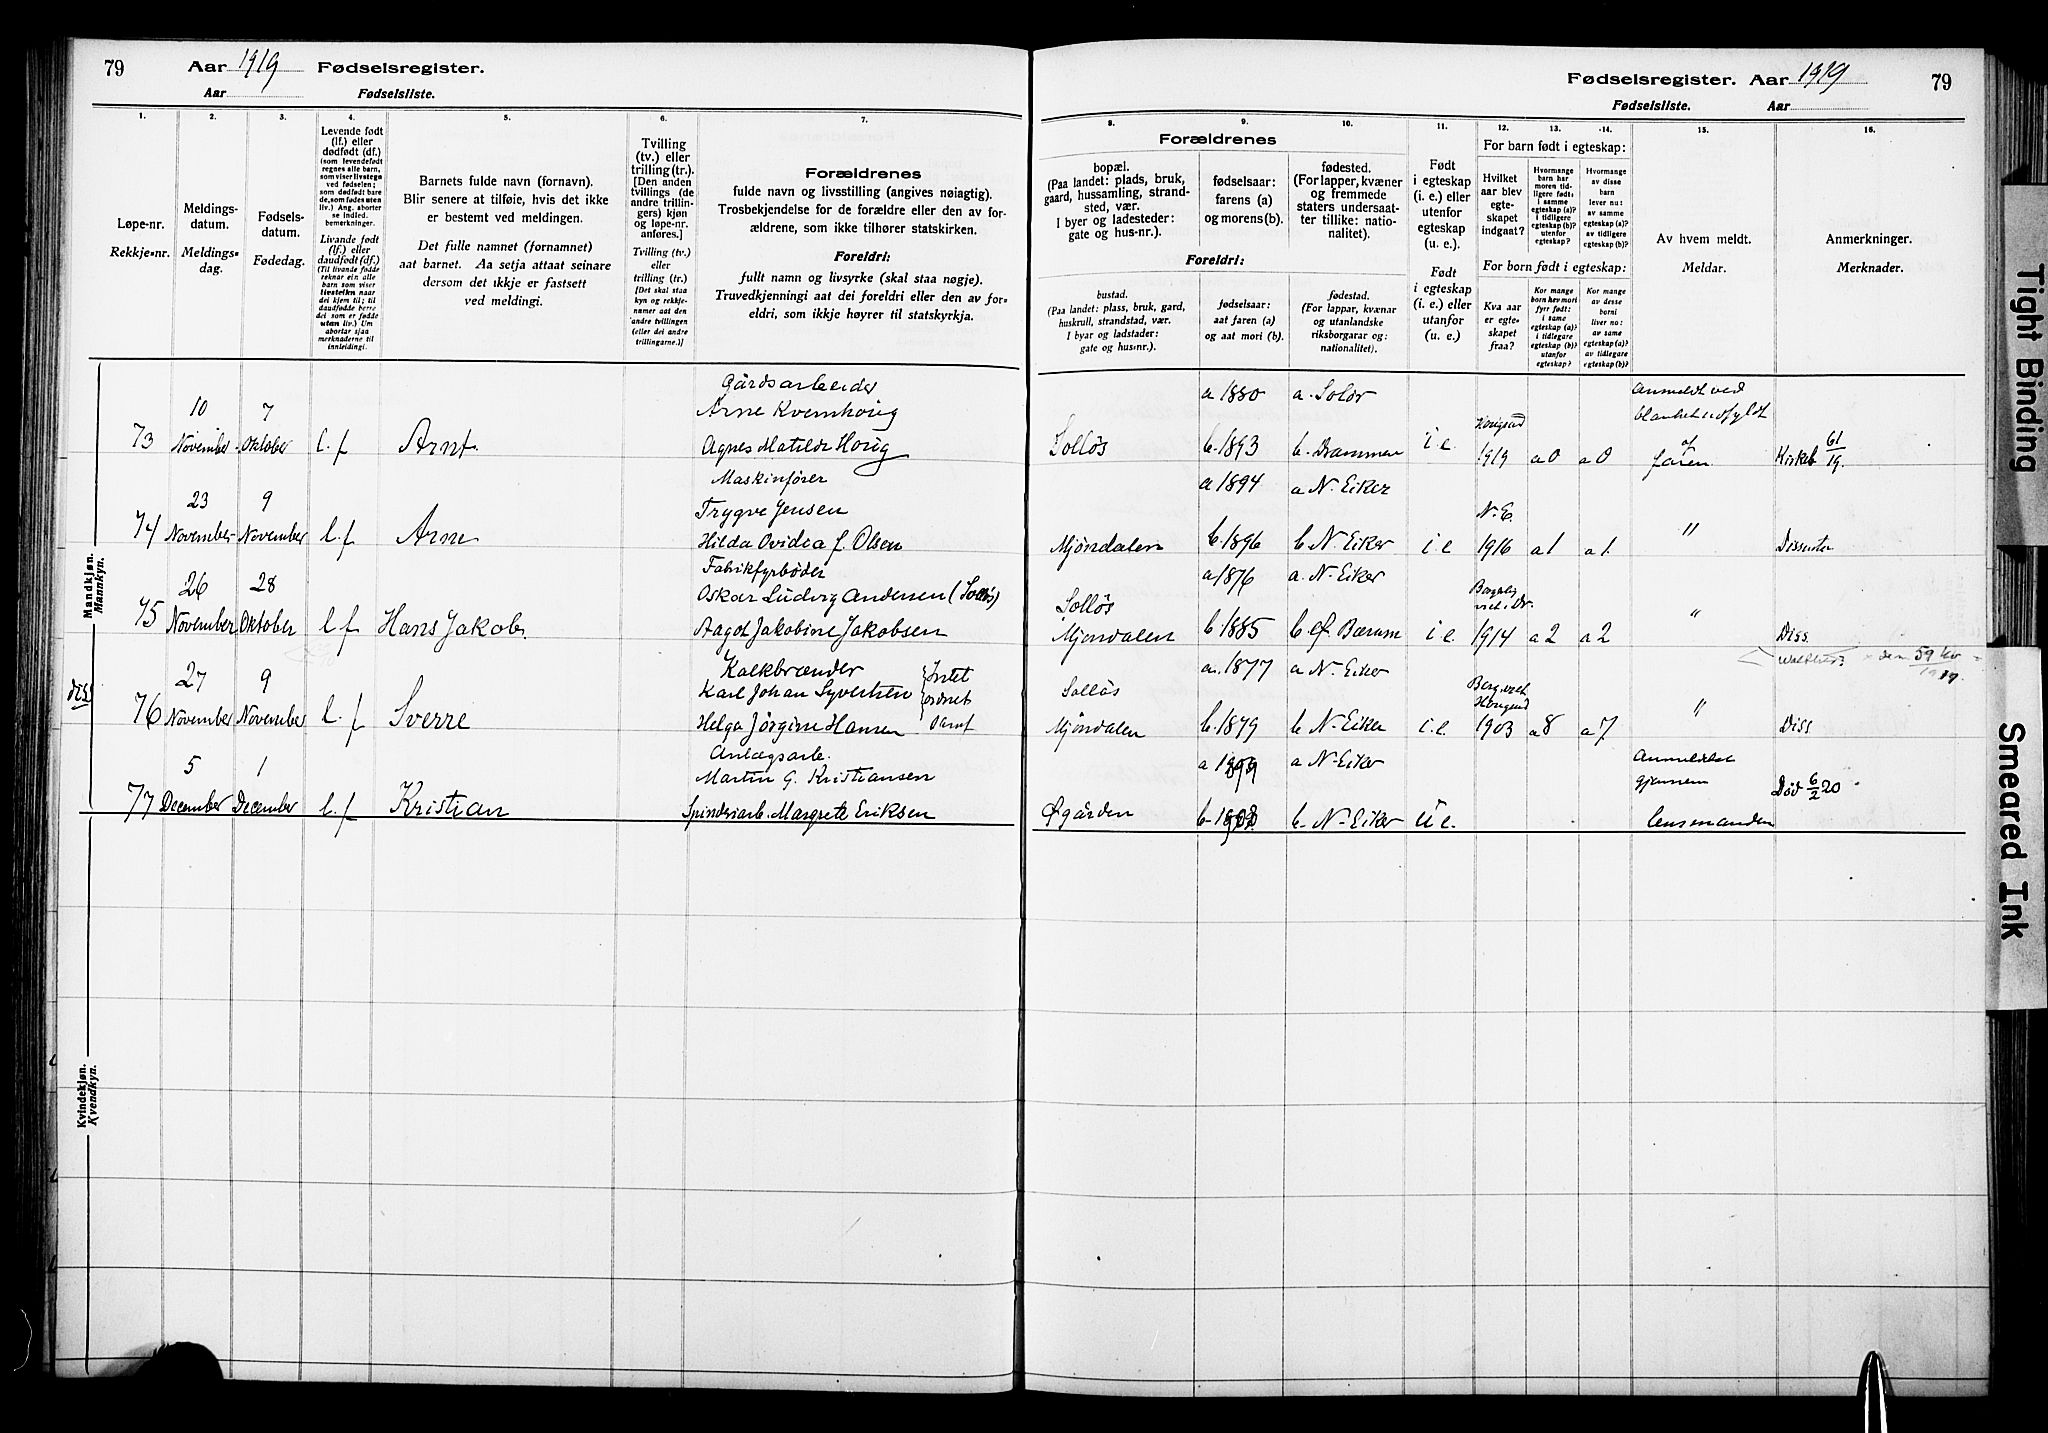 79 Aar 1919 Fødselsregister.
Aar Fødselsliste.
Fødselsregister. Aar 1919 79
Fødselsliste. Aar
1. 2. 3. 4. 5. 6. 7.
Løpe-nr.
Rekkje-nr.
Meldings-
datum.
Meldings-
dag.
Fødsels-
datum.
Fødedag.
Levende født
(lf.) eller
dødfødt (df.)
(som levendefødt
regnes alle barn,
som viser livstegn
ved fødselen;
som dødfødt bare
de, som fødes uten
liv.) Ang. aborter
se indled.
bemerkninger.
Livande født
(lf.) eller
daudfødt (df.)
(Til livande fødde
reknar ein alle
barn som viser
livsteikn naar
dei kjem til; til
daudfødde berre
dei som er fødde
utan liv.) Um
abortar sjaa
merknaderne til
innleidingi.
Barnets fulde navn (fornavn).
Blir senere at tilføie, hvis det ikke
er bestemt ved meldingen.
Det fulle namnet (fornamnet)
aat barnet. Aa setja attaat seinare
dersom det ikkje er fastsett
ved meldingi.
Tvilling
(tv.) eller
trilling (tr.)
[Den anden
tvillings (de
andre trillin-
gers) kjøn
og løpe-nr.
anføres.]
Tvilling (tv.)
eller
trilling (tr.)
[Det skal staa
kyn og rekkje-
numer aat den
andre tvillingen
(eller dei andre
trillingarne.)]
Forældrenes
fulde navn og livsstilling (angives nøiagtig).
Trosbekjendelse for de forældre eller den av for-
ældrene, som ikke tilhører statskirken.
Foreldri:
fullt namn og livsyrke (skal staa nøgje).
Truvedkjenningi aat dei foreldri eller den av for-
eldri, som ikkje høyrer til statskyrkja.
8. 9. 10. 11. 12. 13. 14. 15. 16.
Forældrenes
bopæl.
(Paa landet: plads, bruk,
gaard, hussamling, strand-
sted, vær.
I byer og ladesteder:
gate og hus-nr.).
fødselsaar:
farens (a)
og morens (b).
fødested.
(For lapper, kvæner
og fremmede
staters undersaat-
ter tillike: natio-
nalitet).
Foreldri:
bustad.
(Paa landet: plass, bruk, gard,
huskrull, strandstad, vær.
I byar og ladstader:
gate og hus-nr.).
fødselsaar:
aat faren (a)
og aat mori (b).
fødestad.
(For lappar, kvænar
og utanlandske
riksborgarar og:
nationalitet).
Født
i egteskap
(i. e.) eller
utenfor
egteskap
(u. e.).
Født
i egteskap
(i. e.) eller
utanfor
(u. e.).
For barn født i egteskap:
Hvilket
aar blev
egte-
skapet
indgaat?
Hvormange
barn har
moren tid-
ligere født:
i samme
egteskap (a)?
i tidligere
egteskap (b)?
utenfor
egteskap?
Hvormange
av disse
barn
lever nu:
av samme
egteskap (a)?
av tidligere
egteskap (b)?
For born født i egteskap:
Kva aar
er egte-
skapet
fraa?
Kor mange
born hev mori
fyrr født:
i same
egteskap (a)?
i tidlegare
egteskap (b)?
utanfor
egteskap?
Kor mange
av desse
borni
liver no:
av same
egteskap (a)?
av tidlegare
egteskap (b)?
Av hvem meldt.
Meldar.
Anmerkninger.
Merknader.
Mandkjøn.
Mannkyn.
Gårdsarbeider
10 7 Arne Kvernhoug
73 November Oktober l. f Arnt. Agnes Matilde Houg
a 1880 a. Solør Anmeldt ved
blanket udfyldt
Solløs b. 1893 b. Drammen i e 1919 a 0 a 0 af faren. Kirkeb 61/19.
Maskinfører
23 9 Trygve Jensen
74 November November l. f Arne Hilda Ovidea f. Olsen
a 1894 a N. Eiker N. E.
Mjøndalen b. 1896 b N. Eiker i e 1916 a 1 a 1. " Dissenter
Fabrikfyrbøder
26 28 Oskar Ludvig Andersen (Solløs)
75 November Oktober l. f Hans Jakob. Aagot Jakobine Jakobsen
a 1876 a. N. Eiker
Solløs
Mjøndalen b. 1885 b Bærum i. e. 1914 a 2 a 2 " Diss.
59
diss
Kalkbrænder
27 9 Karl Johan Syvertsen
76 November November l. f Sverre Helga Jørgine Hansen
a. 1877 a N. Eiker
Solløs
Mjøndalen b. 1879 b N. Eiker i. e. 1903 a 8 a 7 " Diss
Anlægsarb.
5 1 Martin G. Kristiansen
77 December December l. f Kristian Spinderiarb. Margrete Eriksen
a 1899 a N. Eiker Anmeldt
gjennem
Øgården b. b. N. Eiker u e. lensmanden Død 6/2 20
Kvindekjøn.
Kvendkyn.
Tight Binding
Smeared Ink